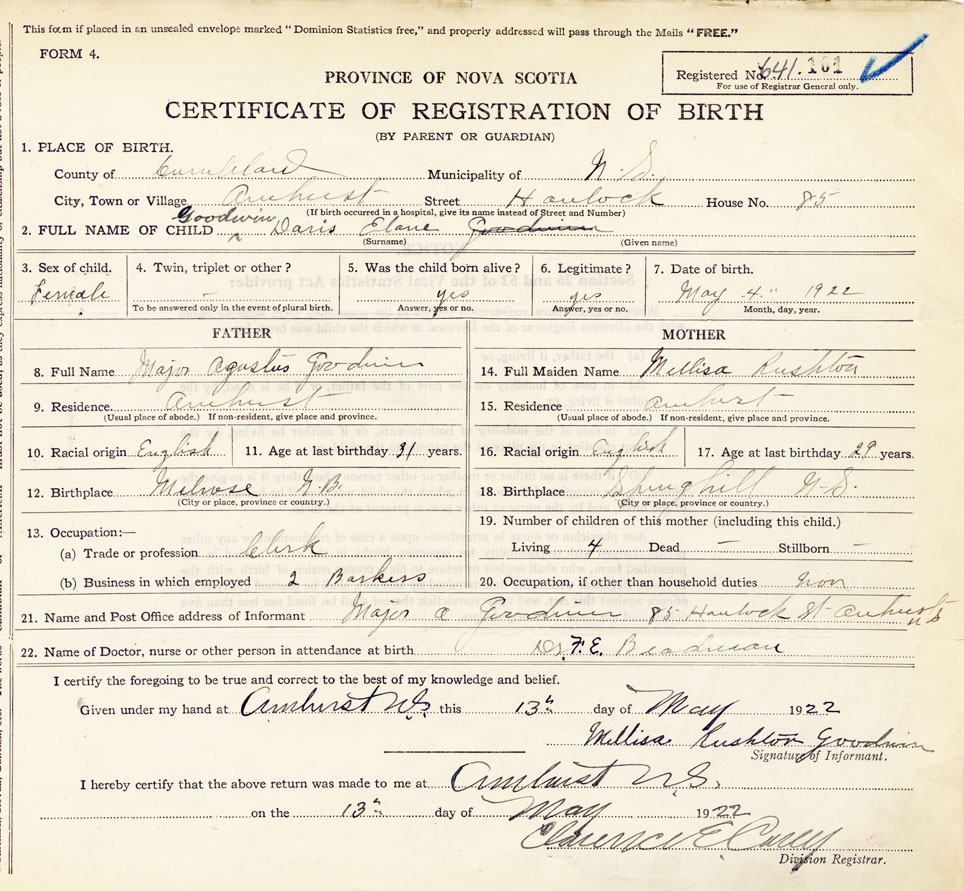 This form if placed in an unsealed envelope marked "Dominion Statistics free," and properly addressed will pass through the Mails "FREE."
FORM 4.
Registered No. 641.101
For use of Registrar General only.
PROVINCE OF NOVA SCOTIA
CERTIFICATE OF REGISTRATION OF BIRTH
(BY PARENT OR GUARDIAN)
1. PLACE OF BIRTH.
County of Cumberland Municipality of N.S.
City, Town or Village Amherst Street Havelock House No. 85
(If birth occurred in a hospital, give its name instead of Street and Number)
Goodwin
2. FULL NAME OF CHILD Daris Elane Goodwin
(Surname) (Given name)
3. Sex of child. 4. Twin, triplet or other? 5. Was the child born alive? 6. Legitimate? 7. Date of birth.
Female - yes yes May 4" 1922
To be answered only in the event of plural birth. Answer, yes or no. Answer, yes or no. Month, day, year.
FATHER MOTHER
8. Full Name Major Agustus Goodwin 14. Full Maiden Name Mellisa Rushton
9. Residence Amherst 15. Residence Amherst
(Usual place of abode.) If non-resident, give place and province. (Usual place of abode.) If non-resident, give place and province.
10. Racial origin English 11. Age at last birthday 31 years. 16. Racial origin English 17. Age at last birthday 29 years.
12. Birthplace Melrose N.B. 18. Birthplace Springhill N.S.
(City or place, province or country.) (City or place, province or country.)
13. Occupation:— 19. Number of children of this mother (including this child.)
(a) Trade or profession Clerk Living 4 Dead - Stillborn -
(b) Business in which employed 2 Barkers 20. Occupation, if other than household duties
21. Name and Post Office address of Informant Major A Goodwin 85 Havelock St Amherst N S
22. Name of Doctor, nurse or other person in attendance at birth Dr F. E.
I certify the foregoing to be true and correct to the best of my knowledge and belief.
Given under my hand at Amherst N.S. this 13th day of May 1922
Mellisa Rushton Goodwin
Signature of Informant.
I hereby certify that the above return was made to me at Amherst N.S.
on the 13th day of May 1922
Clarence E
Division Registrar.